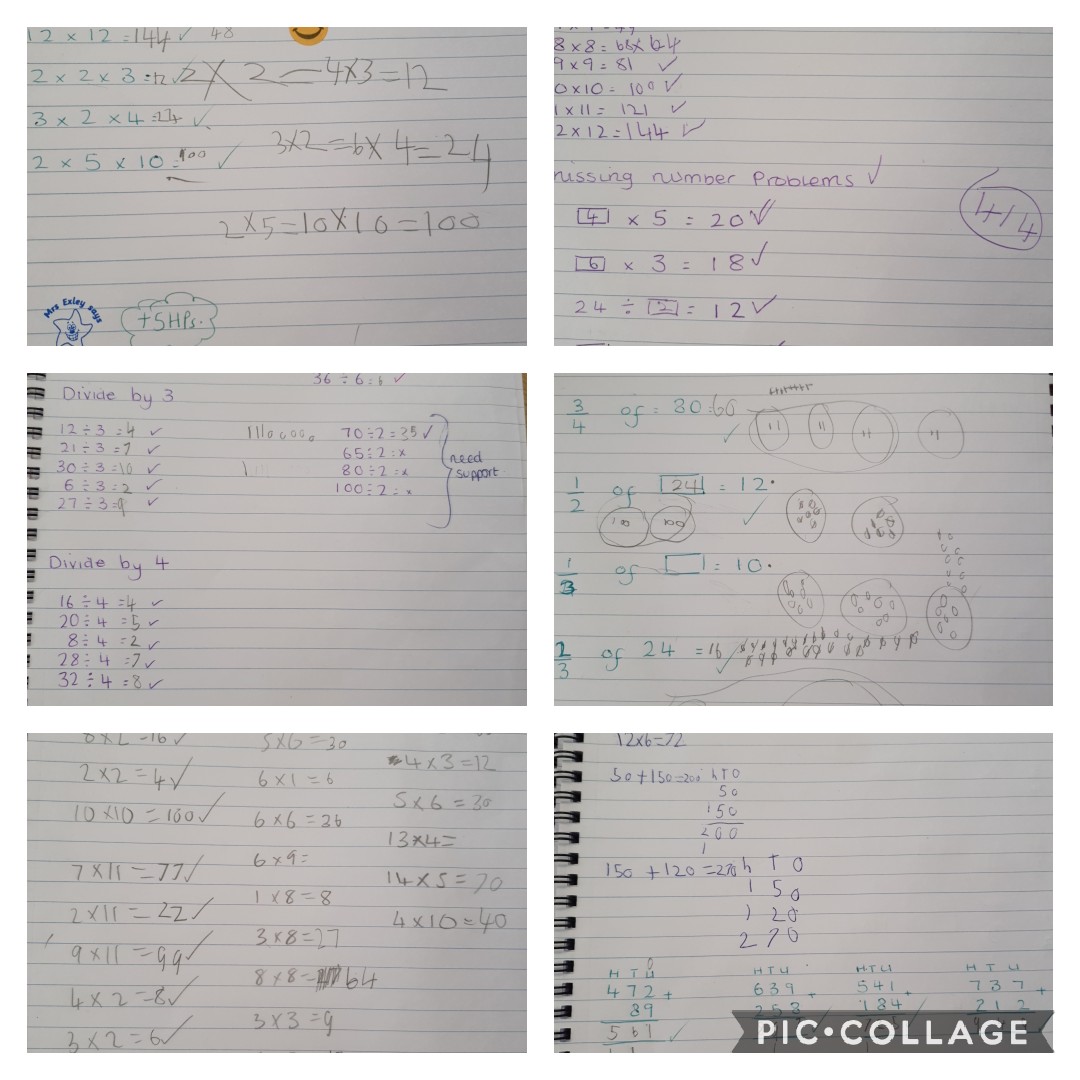 12 × 12 = 144 ✓ 48
2 × 2 × 3 = 12 ✓ 2 × 2 = 4×3 = 12
3 × 2 × 4 = 24 ✓
3×2 = 6 × 4 = 24
2 × 5 × 10 = 100 ✓
2 × 5 = 10 × 10 = 100
Mrs Exley says
+5HPs.
8 × 8 = 68 × 64
9 × 9 = 81 ✓
0 × 10 = 100 ✓
1 × 11 = 121 ✓
2 × 12 = 144 ✓
missing number Problems ✓
4 × 5 = 20 ✓
6 × 3 = 18 ✓
24 ÷ 2 = 12 ✓
4/4
36 ÷ 6 = 6 ✓
Divide by 3
12 ÷ 3 = 4 ✓
21 ÷ 3 = 7 ✓
30 ÷ 3 = 10 ✓
6 ÷ 3 = 2 ✓
27 ÷ 3 = 9 ✓
70 ÷ 2 = 35 ✓
65 ÷ 2 = x
80 ÷ 2 = x
100 ÷ 2 = x
need
support
Divide by 4
16 ÷ 4 = 4 ✓
20 ÷ 4 = 5 ✓
8 ÷ 4 = 2 ✓
28 ÷ 4 = 7 ✓
32 ÷ 4 = 8 ✓
3/4 of = 80 = 60 ✓
1/2 of 24 = 12. ✓
1/3 of = 10.
2/3 of 24 = 16 ✓
8 × 2 = 16 ✓
2 × 2 = 4 ✓
10 × 10 = 100 ✓
7 × 11 = 77 ✓
2 × 11 = 22 ✓
9 × 11 = 99 ✓
4 × 2 = 8 ✓
3 × 2 = 6 ✓
5 × 6 = 30
6 × 1 = 6
6 × 6 = 36
6 × 9 =
1 × 8 = 8
3 × 8 = 27
8 × 8 = 64
3 × 3 = 9
4 × 3 = 12
5 × 6 = 30
13 × 4 =
14 × 5 = 70
4 × 10 = 40
12×6=72
50 + 150 = 200 h T O
50
150
200
1
150 + 120 = 270 h T O
1 5 0
1 2 0
2 7 0
H T U H T U H T U H T U
472 + 639 + 541 + 737 +
89 258 184 212
561 ✓
PIC•COLLAGE